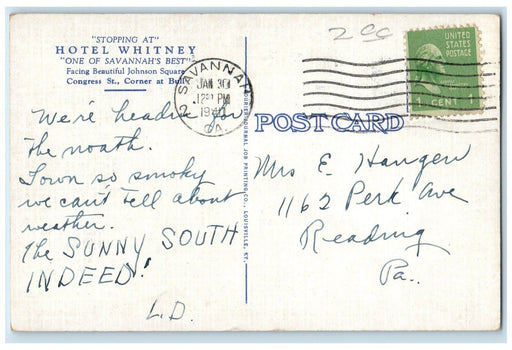 "STOPPING AT"
HOTEL WHITNEY
"ONE OF SAVANNAH'S BEST"
Facing Beautiful Johnson Square
Congress St., Corner at Bull
We're headin for
the noath.
Town so smoky
we can't tell about
weather.
The SUNNY SOUTH
INDEED!
L.D.
COURIER-JOURNAL JOB PRINTING CO., LOUISVILLE, KY.
2 cc
SAVANNAH
JAN 30
12 PM
GA.
UNITED
STATES
POSTAGE
1 CENT 1
POST CARD
Mrs E. Hangen
1162 Perk Ave
Reading
Pa.